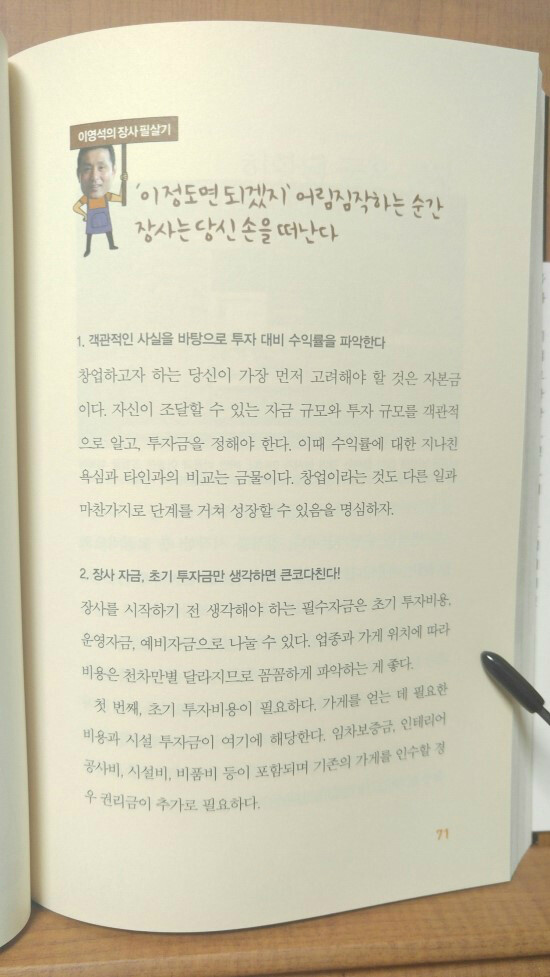 이영석의 장사 필살기
'이 정도면 되겠지' 어림짐작하는 순간
장사는 당신 손을 떠난다
1. 객관적인 사실을 바탕으로 투자 대비 수익률을 파악한다
창업하고자 하는 당신이 가장 먼저 고려해야 할 것은 자본금
이다. 자신이 조달할 수 있는 자금 규모와 투자 규모를 객관적
으로 알고, 투자금을 정해야 한다. 이때 수익률에 대한 지나친
욕심과 타인과의 비교는 금물이다. 창업이라는 것도 다른 일과
마찬가지로 단계를 거쳐 성장할 수 있음을 명심하자.
2. 장사 자금, 초기 투자금만 생각하면 큰코다친다!
장사를 시작하기 전 생각해야 하는 필수자금은 초기 투자비용,
운영자금, 예비자금으로 나눌 수 있다. 업종과 가게 위치에 따라
비용은 천차만별 달라지므로 꼼꼼하게 파악하는 게 좋다.
첫 번째, 초기 투자비용이 필요하다. 가게를 얻는 데 필요한
비용과 시설 투자금이 여기에 해당한다. 임차보증금, 인테리어
공사비, 시설비, 비품비 등이 포함되며 기존의 가게를 인수할 경
우 권리금이 추가로 필요하다.
71